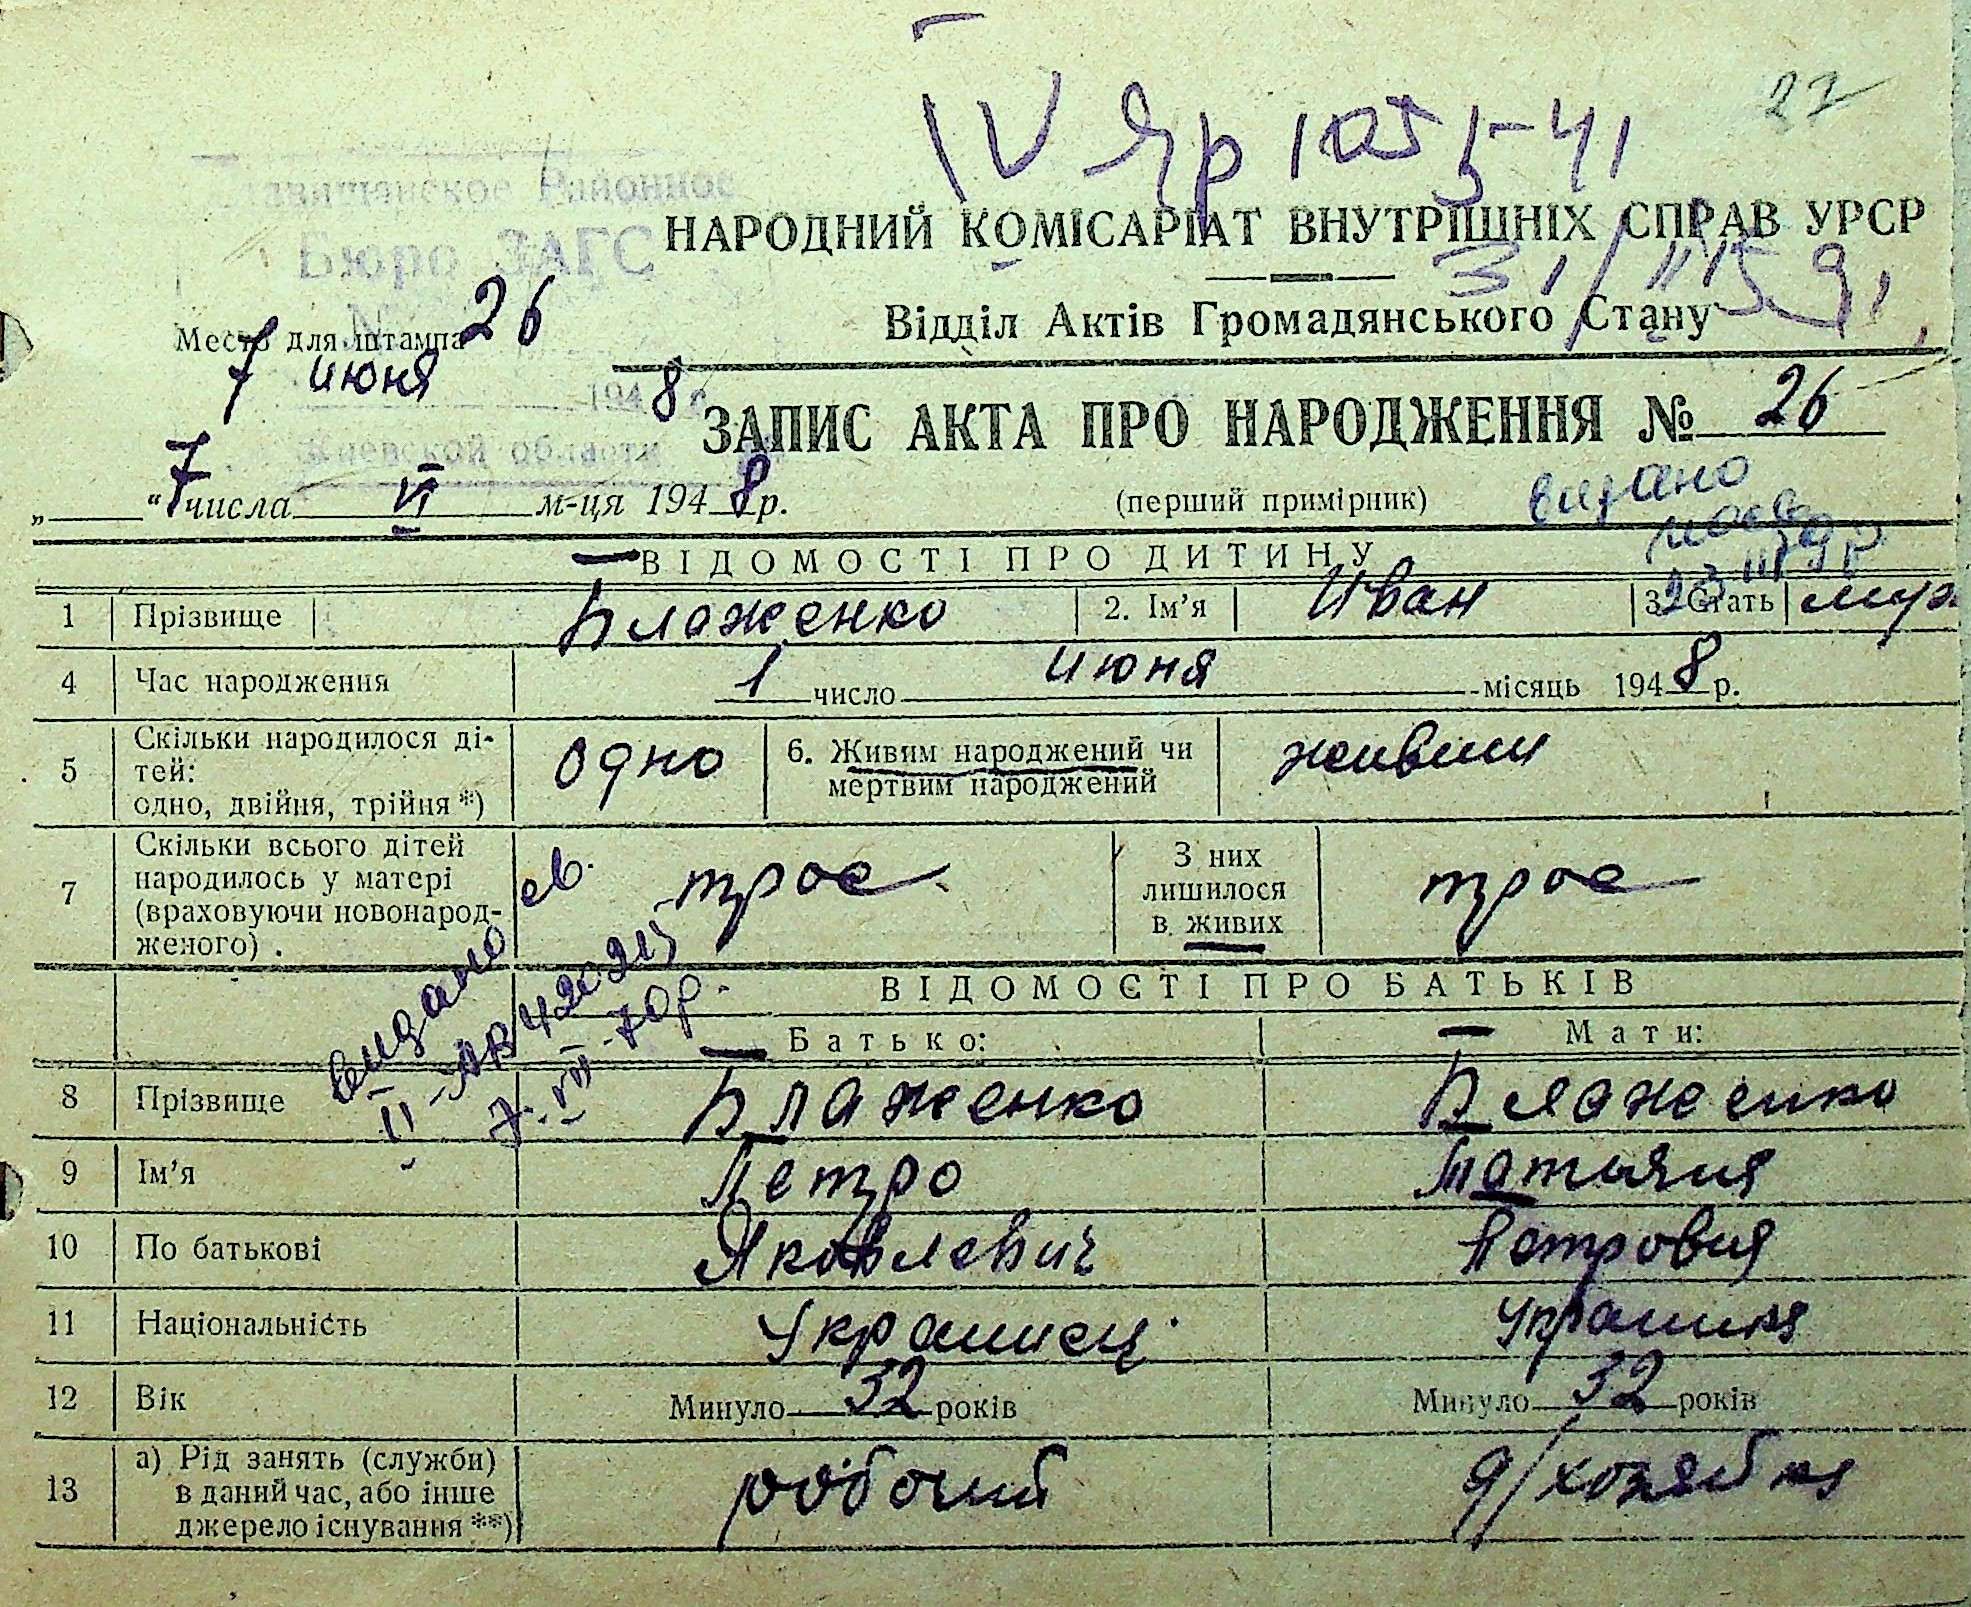 22
IV ЯР 105541
Районное
Бюро ЗАГС
НАРОДНИЙ КОМІСАРІАТ ВНУТРІШНІХ СПРАВ УРСР
Відділ Актів Громадянського Стану
Место для штампа 26
7 июня 1948 г.
ЗАПИС АКТА ПРО НАРОДЖЕННЯ № 26
Киевской области
„ “ 7 числа VI м-ця 1948 р.
(перший примірник)
видано
ВІДОМОСТІ ПРО ДИТИНУ
1 Прізвище Блаженко 2. Ім’я Иван 3. Стать муж
4 Час народження 1 число июня місяць 1948 р.
5 Скільки народилося дітей: одно, двійня, трійня *) одно 6. Живим народжений чи мертвим народжений живим
7 Скільки всього дітей народилось у матері (враховуючи новонародженого). трое З них лишилося в живих трое
видано св.
II-ЯР 420215
7.VII-70р.
ВІДОМОСТІ ПРО БАТЬКІВ
Батько: Мати:
8 Прізвище Блаженко Блаженко
9 Ім’я Петро Татьяня
10 По батькові Яковлевич Петровня
11 Національність Украинец Украинкя
12 Вік Минуло 32 років Минуло 32 років
13 а) Рід занять (служби) в даний час, або інше джерело існування **) робочий д/хозяйкя